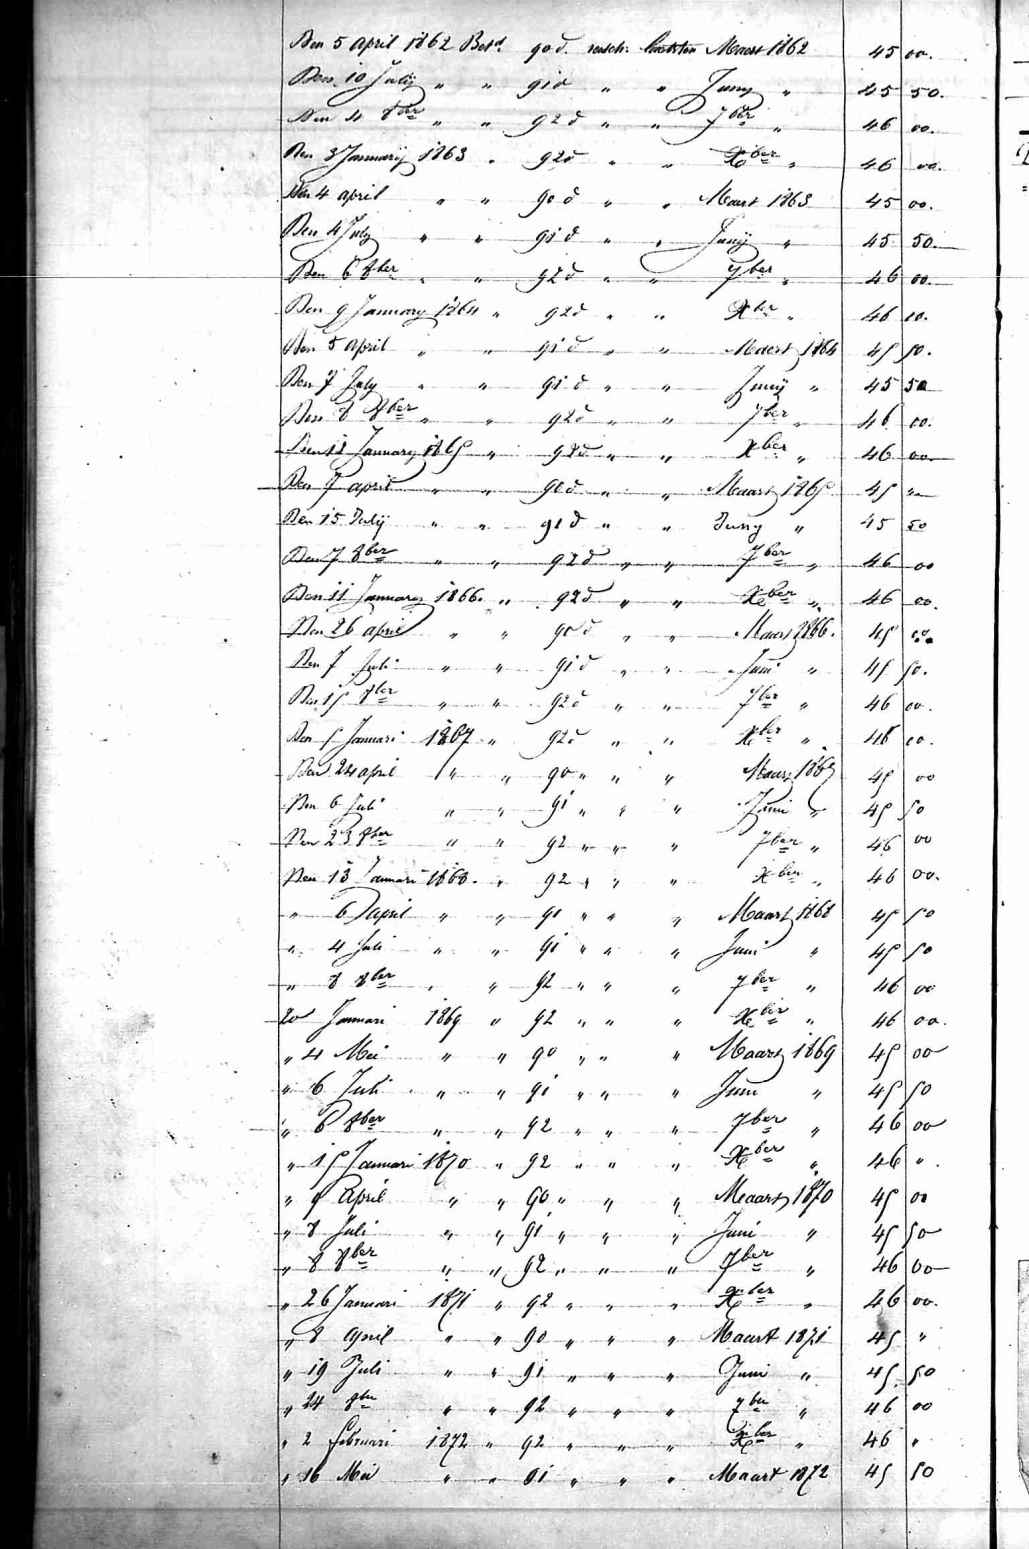 Den 5 April 1862 Bet.d 90 d. Maart 1862 45 00.
Den 10 July " " 91 d " " Juny " 45 50.
Den 4 8ber " " 92 d " " 7ber " 46 00.
Den 3 Januarij 1863 " 92 d " " Xber " 46 00.
Den 4 april " " 90 d " " Maart 1863 45 00.
Den 4 July " " 91 d " " Junij " 45 50.
Den 6 8ber " " 92 d " " 7ber " 46 00.
Den 9 January 1864 " 92 d " " Xber " 46 00.
Den 5 april " " 91 d " " Maert 1864 45 50.
Den 7 July " " 91 d " " Junij " 45 50
Den 8 8ber " " 92 d " " 7ber " 46 00.
Den 12 January 1865 " 92 d " " Xber " 46 00.
Den 7 april " " 90 d " " Maart 1865 45 "
Den 15 Julij " " 91 d " " Juny " 45 50
Den 7 8ber " " 92 d " " 7ber " 46 00
Den 11 January 1866. " 92 d " " Xber " 46 00.
Den 26 april " " 90 d " " Maart 1866. 45 00.
Den 7 Juli " " 91 d " " Juni " 45 50.
Den 15 8ber " " 92 d " " 7ber " 46 00.
Den 5 Januari 1867 " 92 d " " Xber " 46 00.
Den 24 april " " 90 " " " Maart 1867 45 00
Den 6 Juli " " 91 " " " Juni " 45 50
Den 23 8ber " " 92 " " " 7ber " 46 00
Den 13 Januari 1868. " 92 " " " Xber " 46 00.
" 6 april " " 91 " " " Maart 1868 45 50
" 4 Juli " " 91 " " " Juni " 45 50
" 8 8ber " " 92 " " " 7ber " 46 00
20 Januari 1869 " 92 " " " Xber " 46 00.
" 4 Mei " " 90 " " " Maart 1869 45 00
" 6 Juli " " 91 " " " Juni " 45 50
" 6 8ber " " 92 " " " 7ber " 46 00
" 15 Januari 1870 " 92 " " " Xber " 46 ".
" 9 April " " 90 " " " Maart 1870 45 00
" 8 Juli " " 91 " " " Juni " 45 50
" 8 8ber " " 92 " " " 7ber " 46 00
" 26 Januari 1871 " 92 " " " Xber " 46 00.
" 8 April " " 90 " " " Maart 1871 45 "
" 19 Juli " " 91 " " " Juni " 45 50
" 24 8ber " " 92 " " " 7ber " 46 00
" 2 februari 1872 " 92 " " " Xber " 46 "
" 16 Mei " " 91 " " " Maart 1872 45 50